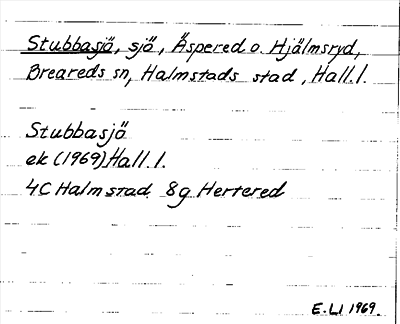 Stubbasjö, sjö, Äspered o. Hjälmsryd,
Breareds sn, Halmstads stad, Hall. l.
Stubbasjö
ek (1969) Hall. l.
4C Halmstad 8g Hertered
E. LI 1969.